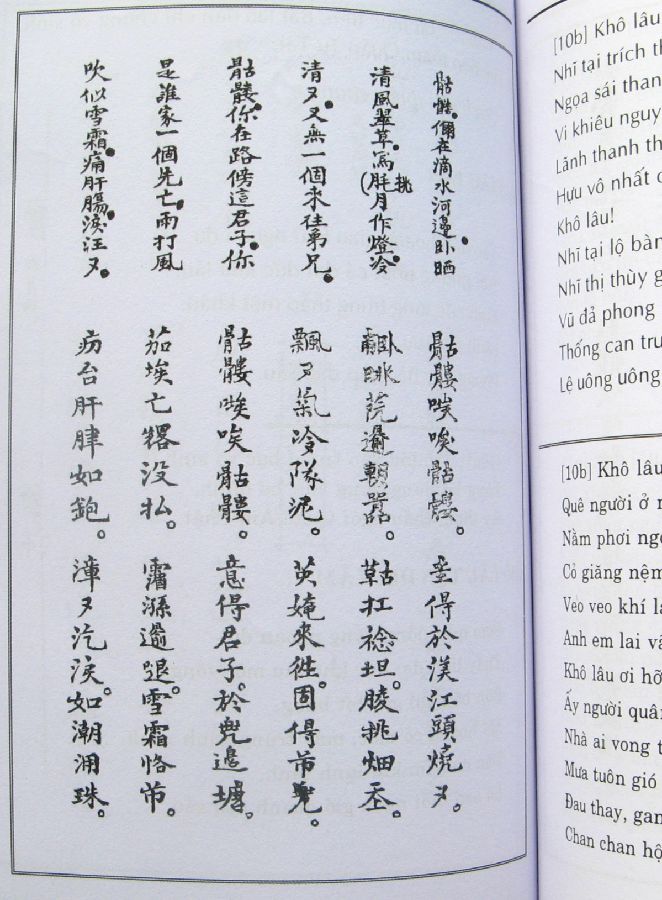 骷髏。儞在滴水河邊卧晒
清風翠草。爲毡挑月作燈。冷
清〻又無一個來往弟兄。
骷髏。你在路傍這君子。你
是誰家一個先亡。雨打風
吹似雪霜。痛肝腸。淚汪〻。
骷髏唉唉骷髏。
飄〻氣冷隊泥。
骷髏唉唉骷髏。
茄埃亡没払。
疠台肝脾如鉋。
得於渼江頭燒〻。
扛坦。挑畑丞。
英俺來徃。固得芇兜。
意得君子。於兠邊塘。
退。雪霜恪芇。
漳〻汔淚。如潮湧珠。
[10b] Khô lâu
Nhĩ tại trích th
Ngọa sái than
Vi khiêu nguy
Lãnh thanh th
Hựu vô nhất c
Khô lâu!
Nhĩ tại lộ bàn
Nhĩ thị thùy g
Vũ đả phong
Thống can trư
Lệ uông uông
[10b] Khô lâu
Quê người ở m
Nằm phơi ngo
Cỏ giăng nệm
Vèo veo khí lạ
Anh em lai vã
Khô lâu ơi hỡ
Ấy người quân
Nhà ai vong t
Mưa tuôn gió
Đau thay, gan
Chan chan hộ